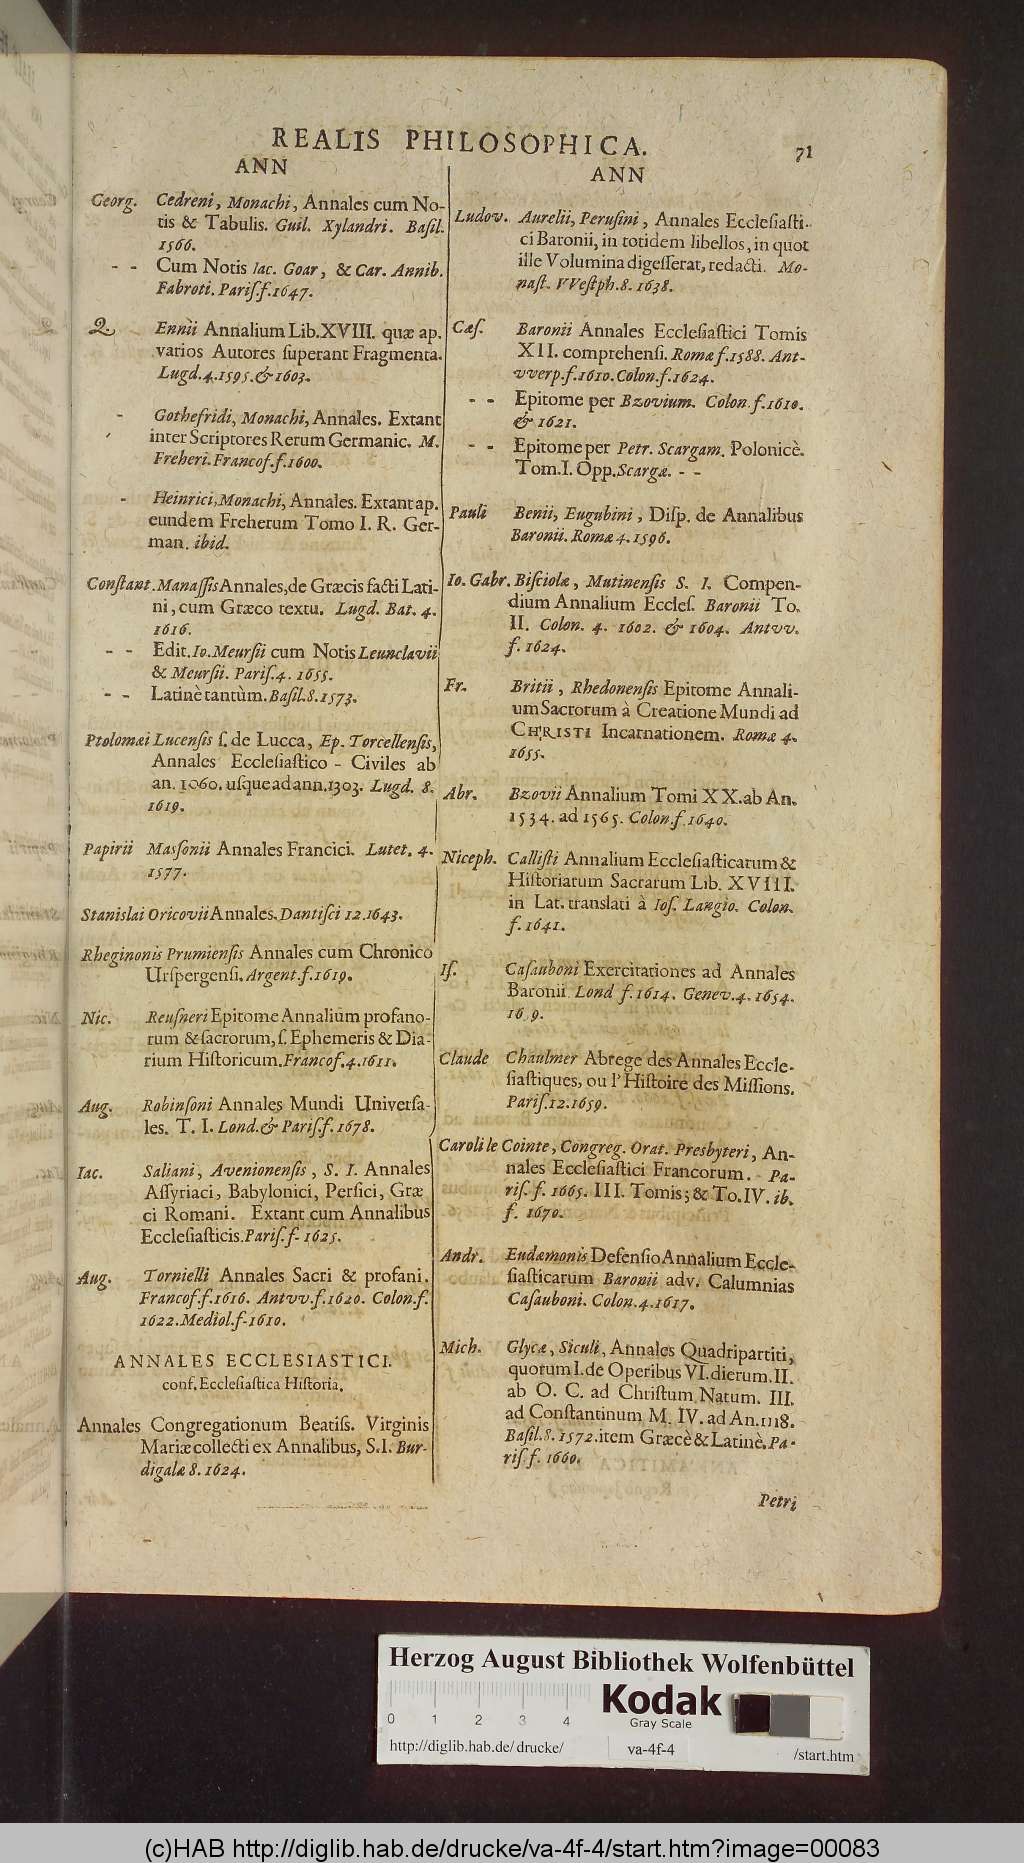 REALIS PHILOSOPHICA.
71
ANN
Georg. Cedreni, Monachi, Annales cum No-
tis & Tabulis. Guil. Xylandri. Basil.
1566.
- - Cum Notis Iac. Goar, & Car. Annib.
Fabroti. Paris. f. 1647.
Q. Ennii Annalium Lib. XVIII. quæ ap.
varios Autores superant Fragmenta.
Lugd. 4. 1595. & 1603.
- Gothefridi, Monachi, Annales. Extant
inter Scriptores Rerum Germanic. M.
Freheri. Francof. f. 1600.
- Heinrici, Monachi, Annales. Extant ap.
eundem Freherum Tomo I. R. Ger-
man. ibid.
Constant. Manassis Annales, de Græcis facti Lati-
ni, cum Græco textu. Lugd. Bat. 4.
1616.
- - Edit. Io. Meursii cum Notis Leunclavii
& Meursii. Paris. 4. 1655.
- - Latinè tantùm. Basil. 8. 1573.
Ptolomæi Lucensis s. de Lucca, Ep. Torcellensis,
Annales Ecclesiastico - Civiles ab
an. 1060. usque ad ann. 1303. Lugd. 8.
1619.
Papirii Massonii Annales Francici. Lutet. 4.
1577.
Stanislai Oricovii Annales. Dantisci 12. 1643.
Rheginonis Prumiensis Annales cum Chronico
Urspergensi. Argent. f. 1619.
Nic. Reusneri Epitome Annalium profano-
rum & sacrorum, s. Ephemeris & Dia-
rium Historicum. Francof. 4. 1611.
Aug. Robinsoni Annales Mundi Universa-
les. T. I. Lond. & Paris. f. 1678.
Iac. Saliani, Avenionensis, S. I. Annales
Assyriaci, Babylonici, Persici, Græ
ci Romani. Extant cum Annalibus
Ecclesiasticis. Paris. f- 1625.
Aug. Tornielli Annales Sacri & profani.
Francof. f. 1616. Antvv. f. 1620. Colon. f.
1622. Mediol. f- 1610.
ANNALES ECCLESIASTICI.
conf. Ecclesiastica Historia.
Annales Congregationum Beatiss. Virginis
Mariæ collecti ex Annalibus, S. I. Bur-
digalæ 8. 1624.
ANN
Ludov. Aurelii, Perusini, Annales Ecclesiasti-
ci Baronii, in totidem libellos, in quot
ille Volumina digesserat, redacti. Mo-
nast. VVestph. 8. 1638.
Cæs. Baronii Annales Ecclesiastici Tomis
XII. comprehensi. Romæ f. 1588. Ant-
vverp. f. 1610. Colon. f. 1624.
- - Epitome per Bzovium. Colon. f. 1610.
& 1621.
- - Epitome per Petr. Scargam. Polonicè.
Tom. I. Opp. Scargæ. - -
Pauli Benii, Eugubini, Disp. de Annalibus
Baronii. Romæ 4. 1596.
Io. Gabr. Bisciolæ, Mutinensis S. I. Compen-
dium Annalium Eccles. Baronii To.
II. Colon. 4. 1602. & 1604. Antvv.
f. 1624.
Fr. Britii, Rhedonensis Epitome Annali-
um Sacrorum à Creatione Mundi ad
CHRISTI Incarnationem. Romæ 4.
1655.
Abr. Bzovii Annalium Tomi XX. ab An.
1534. ad 1565. Colon. f. 1640.
Niceph. Callisti Annalium Ecclesiasticarum &
Historiarum Sacrarum Lib. XVIII.
in Lat. translati à Ios. Langio. Colon.
f. 1641.
Is. Casauboni Exercitationes ad Annales
Baronii Lond f. 1614. Genev. 4. 1654.
16 9.
Claude Chaulmer Abrege des Annales Eccle-
siastiques, ou l'Histoire des Missions.
Paris. 12. 1659.
Caroli le Cointe, Congreg. Orat. Presbyteri, An-
nales Ecclesiastici Francorum. - Pa-
ris. f. 1665. III. Tomis; & To. IV. ib.
f. 1670.
Andr. Eudæmonis Defensio Annalium Eccle-
siasticarum Baronii adv. Calumnias
Casauboni. Colon. 4. 1617.
Mich. Glycæ, Siculi, Annales Quadripartiti,
quorum I. de Operibus VI. dierum. II.
ab O. C. ad Christum Natum. III.
ad Constantinum M. IV. ad An. 1118.
Basil. 8. 1572. item Græcè & Latinè. Pa-
ris. f. 1660.
Petri
Herzog August Bibliothek Wolfenbüttel
Kodak
Gray Scale
0 1 2 3 4
http://diglib.hab.de/drucke/ va-4f-4 /start.htm
(c)HAB http://diglib.hab.de/drucke/va-4f-4/start.htm?image=00083